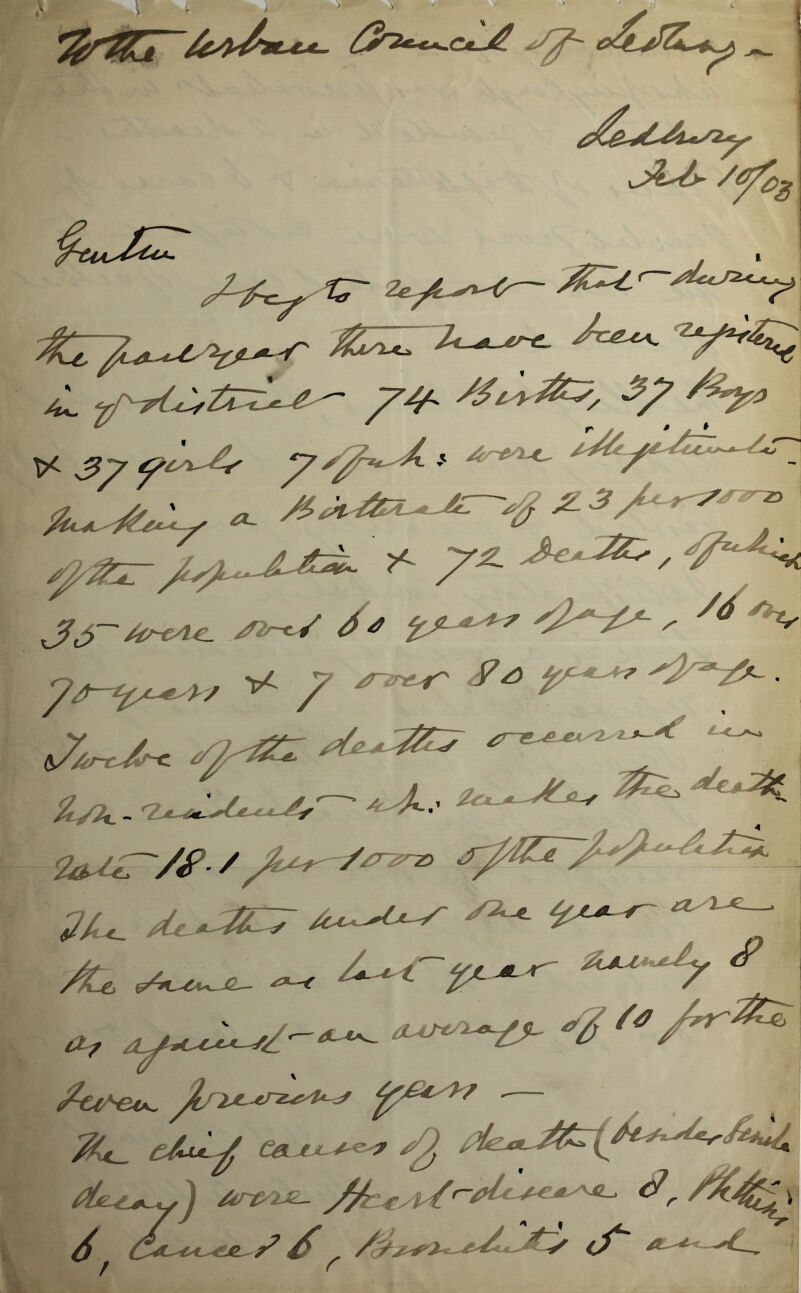 To the Urban Council of Ledbury -
Ledbury
Feb 10/03
Gentln
I beg to report that during
the past year there have been registered
in yr district 74 Births, 37 Boys
& 37 girls 7 of wh: were illegitimate -
making a Birthrate of 23 per 1000
of the population & 72 Deaths, of which
35 were over 60 years of age, 16 over
70 years & 7 over 80 years of age.
Twelve of the deaths occurred in
non-residents wh: makes the death-
rate 18.1 per 1000 of the population
The deaths under one year are
the same as last year namely 8
as against an average of 10 for the
seven previous years —
The chief causes of death (besides Senile
decay) were Heart-disease 8, Phthisis
6, Cancer 6, Bronchitis 5 and